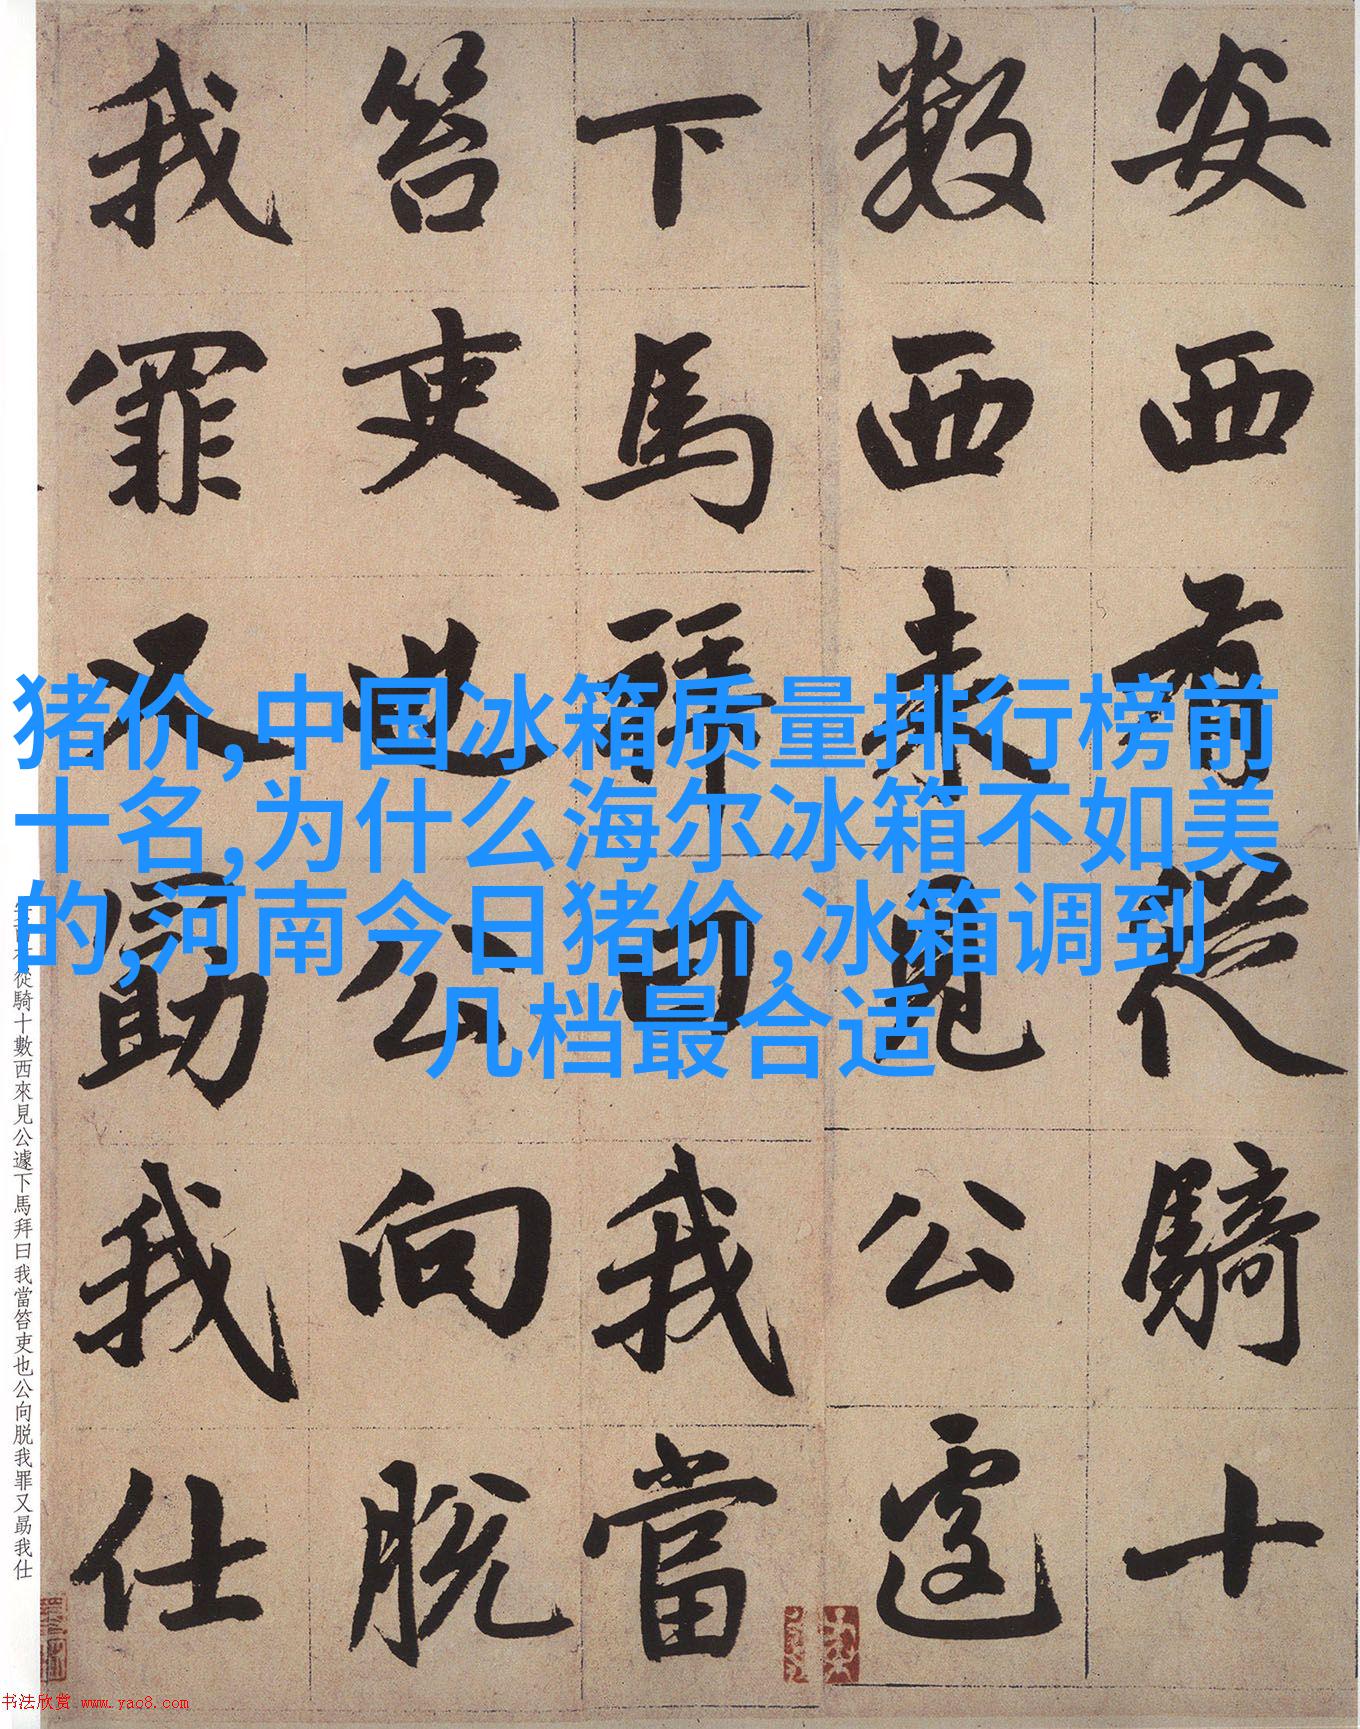 安西有從騎十
数西来見公遽
下馬拜曰我當
笞吏也公向脱
我罪又勗我仕
猪价,中国冰箱质量排行榜前
十名,为什么海尔冰箱不如美
的,河南今日猪价,冰箱调到
几档最合适
從騎十數西來見公遽下馬拜曰我當笞吏也公向脱我罪又勗我仕
书法欣赏 www.yac8.com